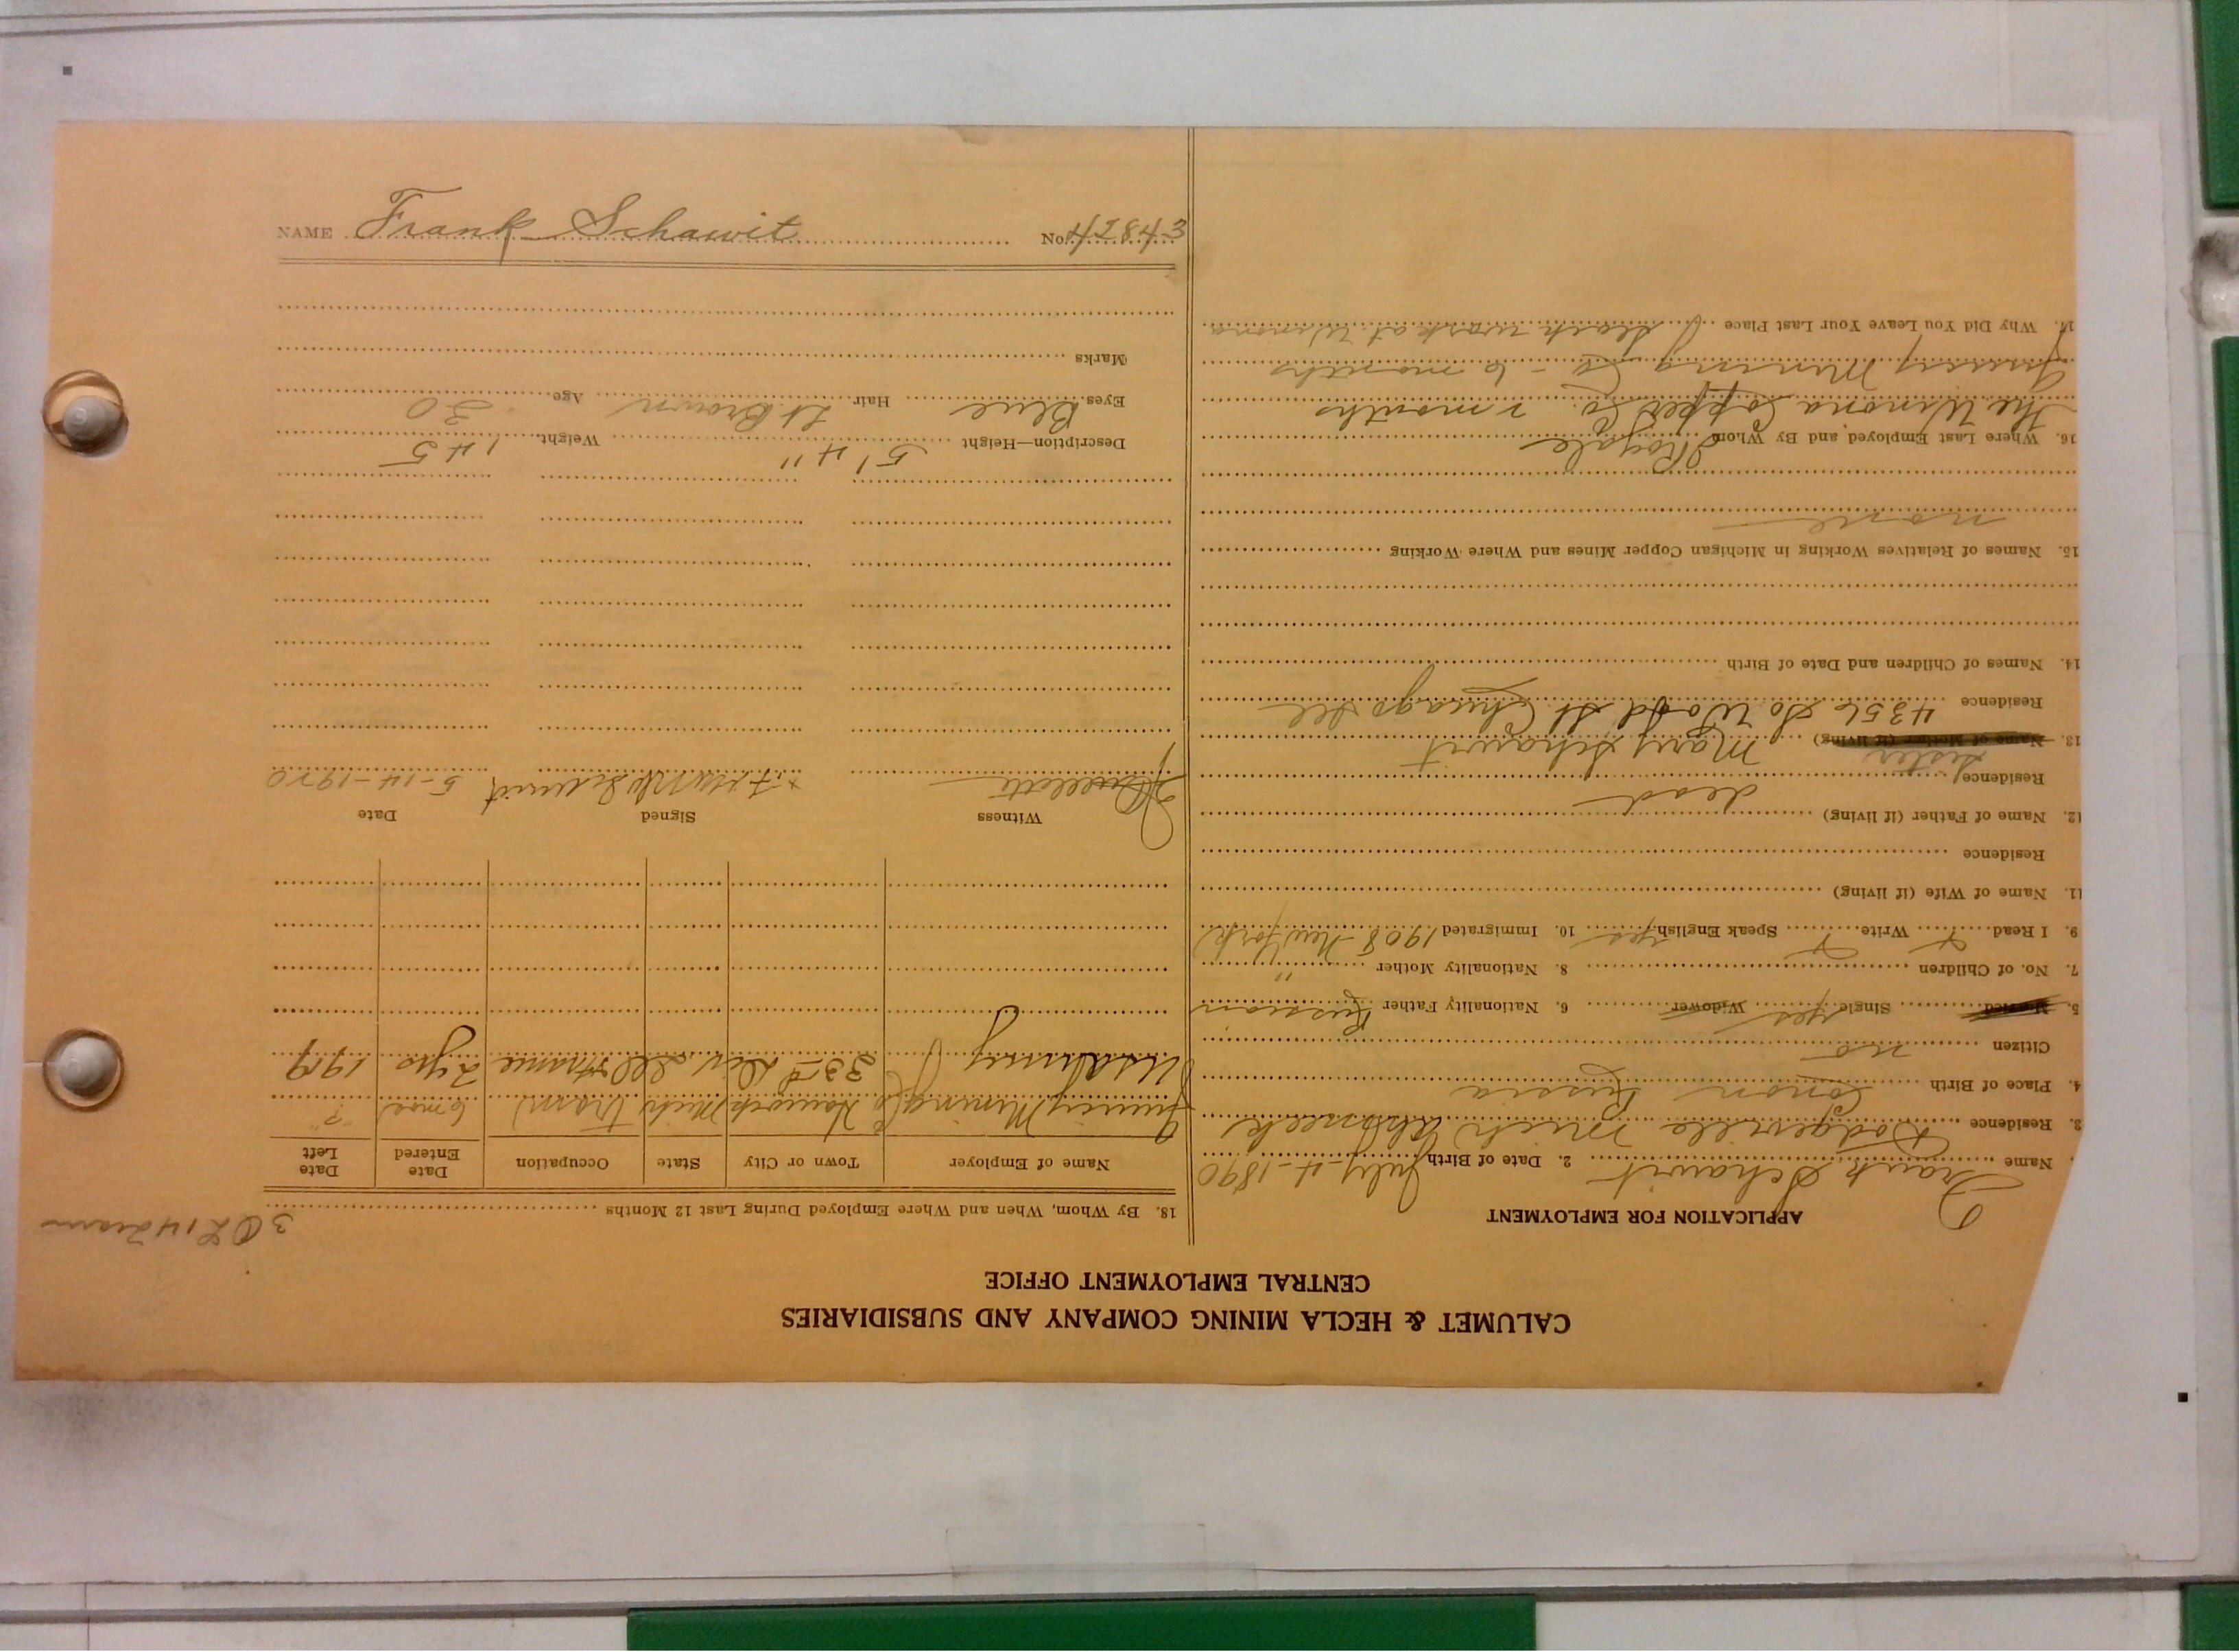 NAME Frank Schawit No. 42843
CALUMET & HECLA MINING COMPANY AND SUBSIDIARIES
CENTRAL EMPLOYMENT OFFICE
APPLICATION FOR EMPLOYMENT
Name Frank Schawit 2. Date of Birth July-4-1890
3. Residence Dodgeville Mich Ahmeek
4. Place of Birth Russia
Citizen no
5. Married Single yes Widower 6. Nationality Father Russian
7. No. of Children 8. Nationality Mother "
9. I Read x Write x Speak English yes 10. Immigrated 1908-New York
11. Name of Wife (if living)
Residence
12. Name of Father (if living) dead
Residence
Sister
13. Name of Mother (if living) Mary Schawit
Residence 4356 So Wood St Chicago Ill
14. Names of Children and Date of Birth
15. Names of Relatives Working in Michigan Copper Mines and Where Working
none
16. Where Last Employed and By Whom Royale
The Winona Copper Co. 2 months
Quincy Mining Co - 6 months
17. Why Did You Leave Your Last Place Slack work at Winona
18. By Whom, When and Where Employed During Last 12 Months
Name of Employer Town or City State Occupation Date Entered Date Left
Quincy Mining Co Hancock Mich tram 6 mos "?"
US Army 33rd Div Ill France 2 yrs 1919
Witness Signed Date
x Frank Schawit 5-14-1920
Description—Height 5' 4" Weight 145
Eyes Blue Hair Lt Brown Age 30
Marks